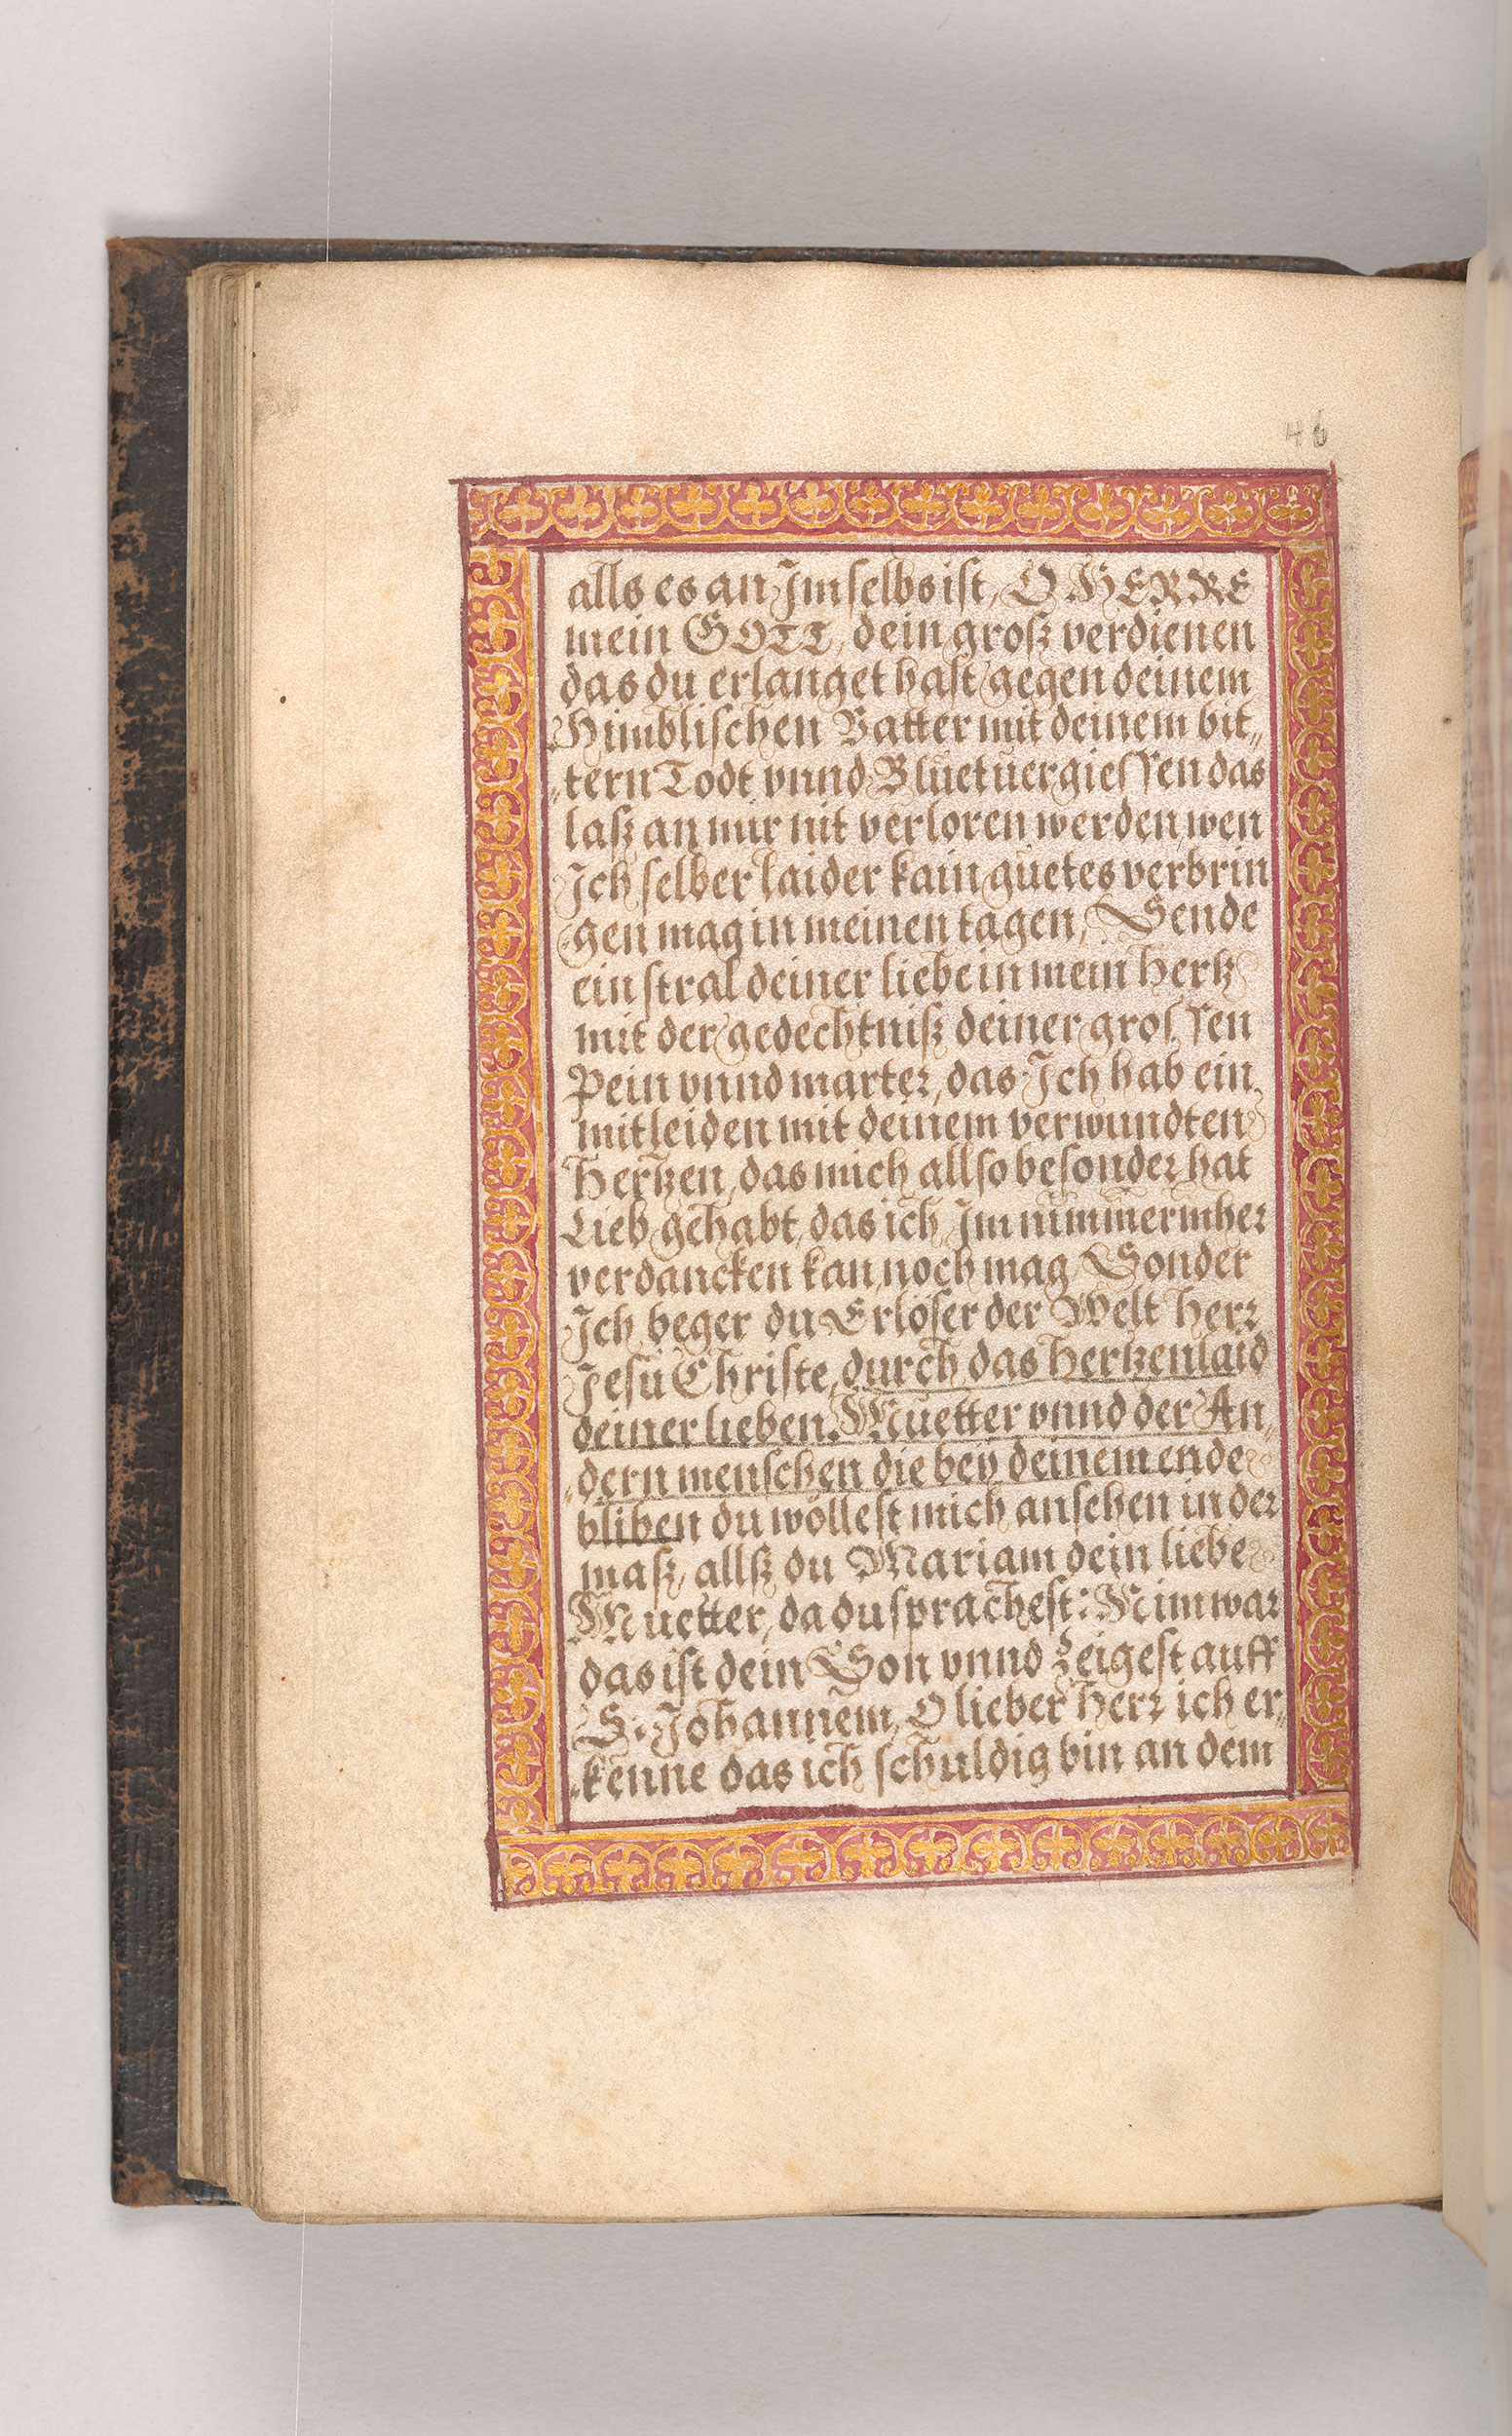 46
alls es an Jm selbs ist, O HERRE
mein GOTT, dein groß verdienen
das du erlanget hast gegen deinem
Himblischen Vatter mit deinem bit„
„tern Todt vnnd Bluetuergiessen das
laß an mir nit verloren werden, wen
Jch selber laider kain guetes verbrin
„gen mag in meinen tagen, Sende
ein stral deiner liebe in mein Hertz
mit der gedechtniß deiner grossen
Pein vnnd marter, das Jch hab ein
mitleiden mit deinem verwundten
Hertzen, das mich allso besonder hat
Lieb gehabt, das ich Jm nimmermher
verdancken kan, noch mag Sonder
Jch beger du Erlöser der Welt Herr
Jesu Christe, durch das Hertzenlaid
deiner lieben Muetter vnnd der An„
„dern menschen die bey deinem ende
bliben du wöllest mich ansehen in der
maß, allß du Mariam dein liebe
Muetter, da du sprachest: Nim war
das ist dein Son vnnd Zeigest auff
S: Johannem, O lieber Herr ich er„
„kenne das ich schuldig bin an dem